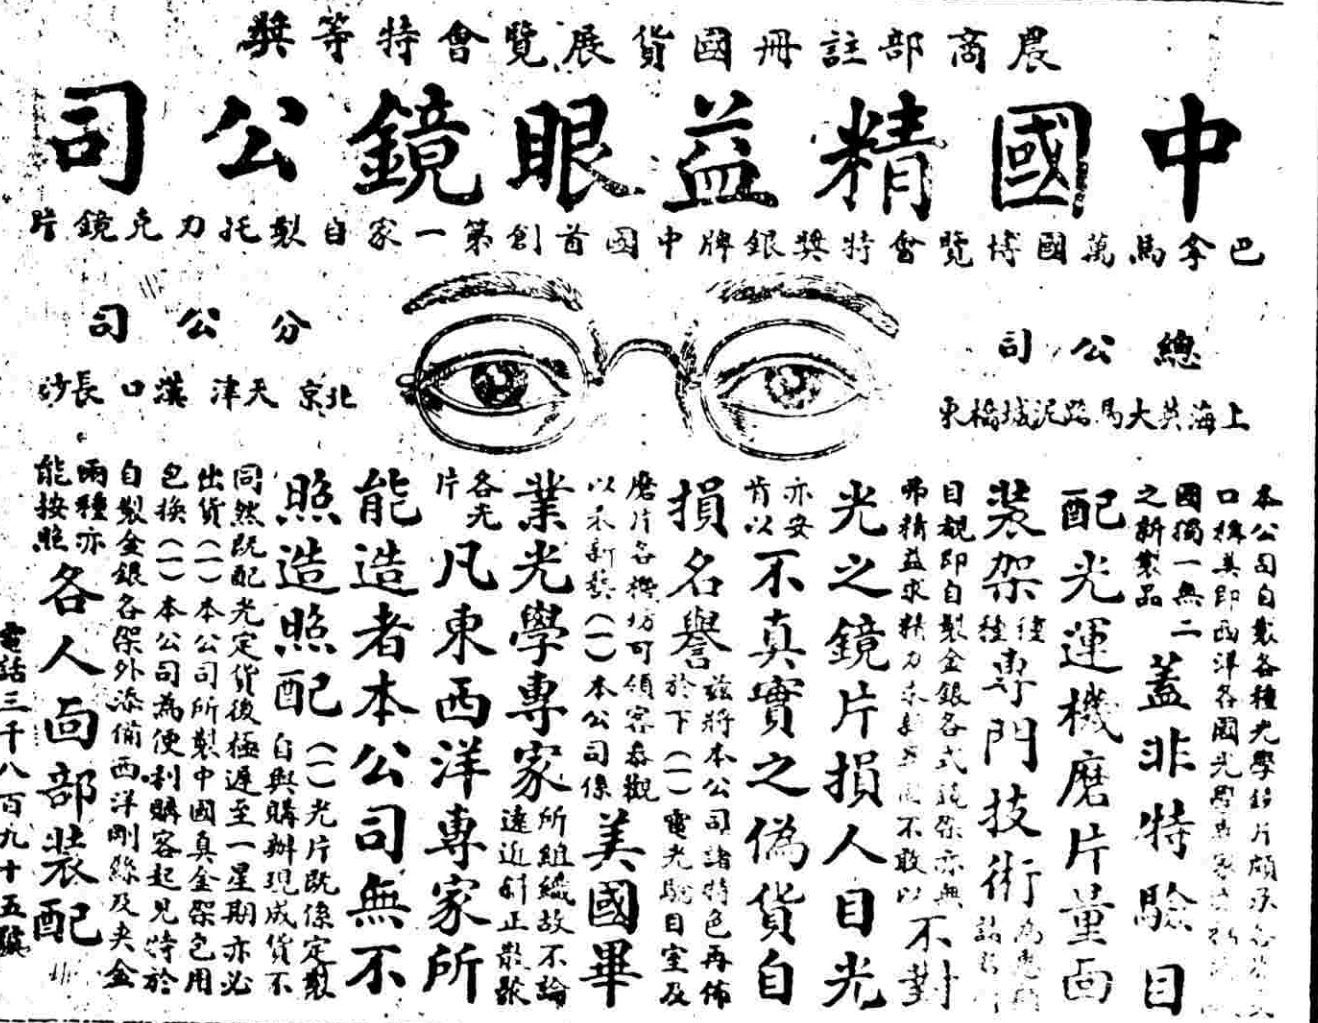 農商部註冊國貨展覽會特等獎
中國精益眼鏡公司
巴拿馬萬國博覽會特獎銀牌中國首創第一家自製托力克鏡片
總公司
上海英大馬路泥城橋東
分公司
北京 天津 漢口 長沙
本公司自製各種光學鏡片頗承各界
口稱美即西洋各國光學專家
國獨一無二
之新製品
蓋非特驗目
配光運機磨片量面
裝架種種專門技術
目觀即自製金銀各式鏡架亦無
弗精益求精力求不敢以
不對
光之鏡片損人目光
亦安
肯以
不真實之偽貨自
損名譽茲將本公司諸特色再佈
於下(一)電光驗目室及
磨片各機坊可領客參觀
以示新發(一)本公司係
美國畢
業光學專家所組織故不論
遠近斜正散歛
各光
片
凡東西洋專家所
能造者本公司無不
照造照配(一)光片既係定製
自與購辦現成貨不
同然既配光定貨後極遲至一星期亦必
出貨(一)本公司所製中國真金架包用
包換(一)本公司為便利購客起見特於
自製金銀各架外添備西洋剛絲及夾金
兩種亦
能按照
各人面部裝配
電話三千八百九十五號